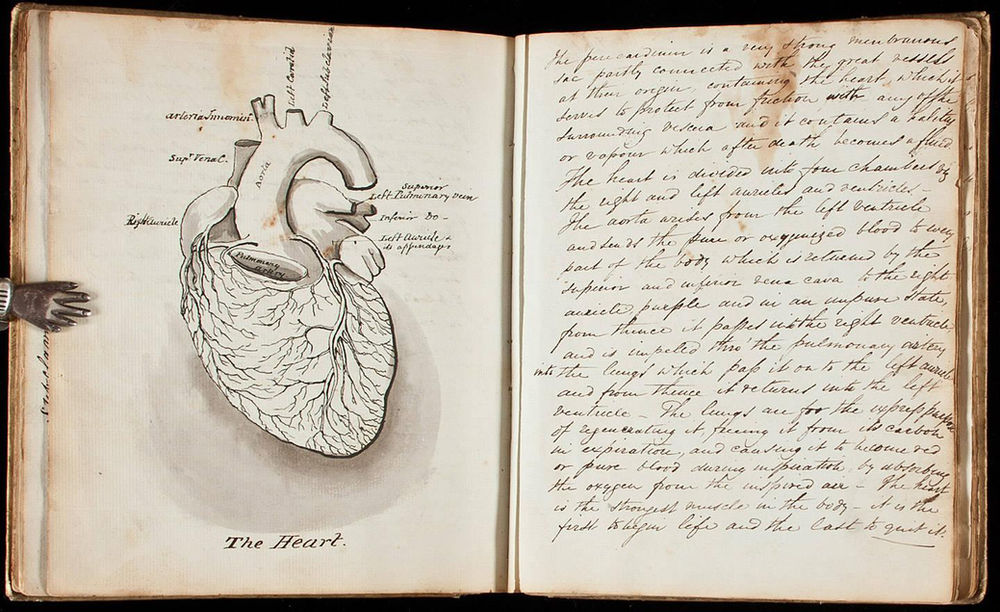 Left Carotid
Left Subclavian
Arteria Innomin.
Supr Vena C.
Aorta
Superior
Left Pulmonary vein
Right Auricle
Inferior Do -
Left Auricle &
its appendages
Pulmonary
Artery
The Heart.
The pericardium is a very strong membranous
sac partly connected with the great vessels
at their origin, containing the heart, which it
serves to protect from friction with any of the
surrounding viscera and it contains a halitus
or vapour which after death becomes a fluid
The heart is divided into four chambers viz
the right and left auricles and ventricles -
The aorta arises from the left ventricle
and sends the pure or oxygenized blood to every
part of the body which is returned by the
superior and inferior vena cava to the right
auricle purple and in an impure state,
from thence it passes into the right ventricle
and is impeled thro' the pulmonary artery
into the lungs which pass it on to the left auricle
and from thence it returns into the left
ventricle - The lungs are for the express purpose
of regenerating it, freeing it from its carbon
in expiration, and causing it to become red
or pure blood during inspiration, by absorbing
the oxygen from the inspired air - The heart
is the strongest muscle in the body - it is the
first to begin life and the last to quit it.